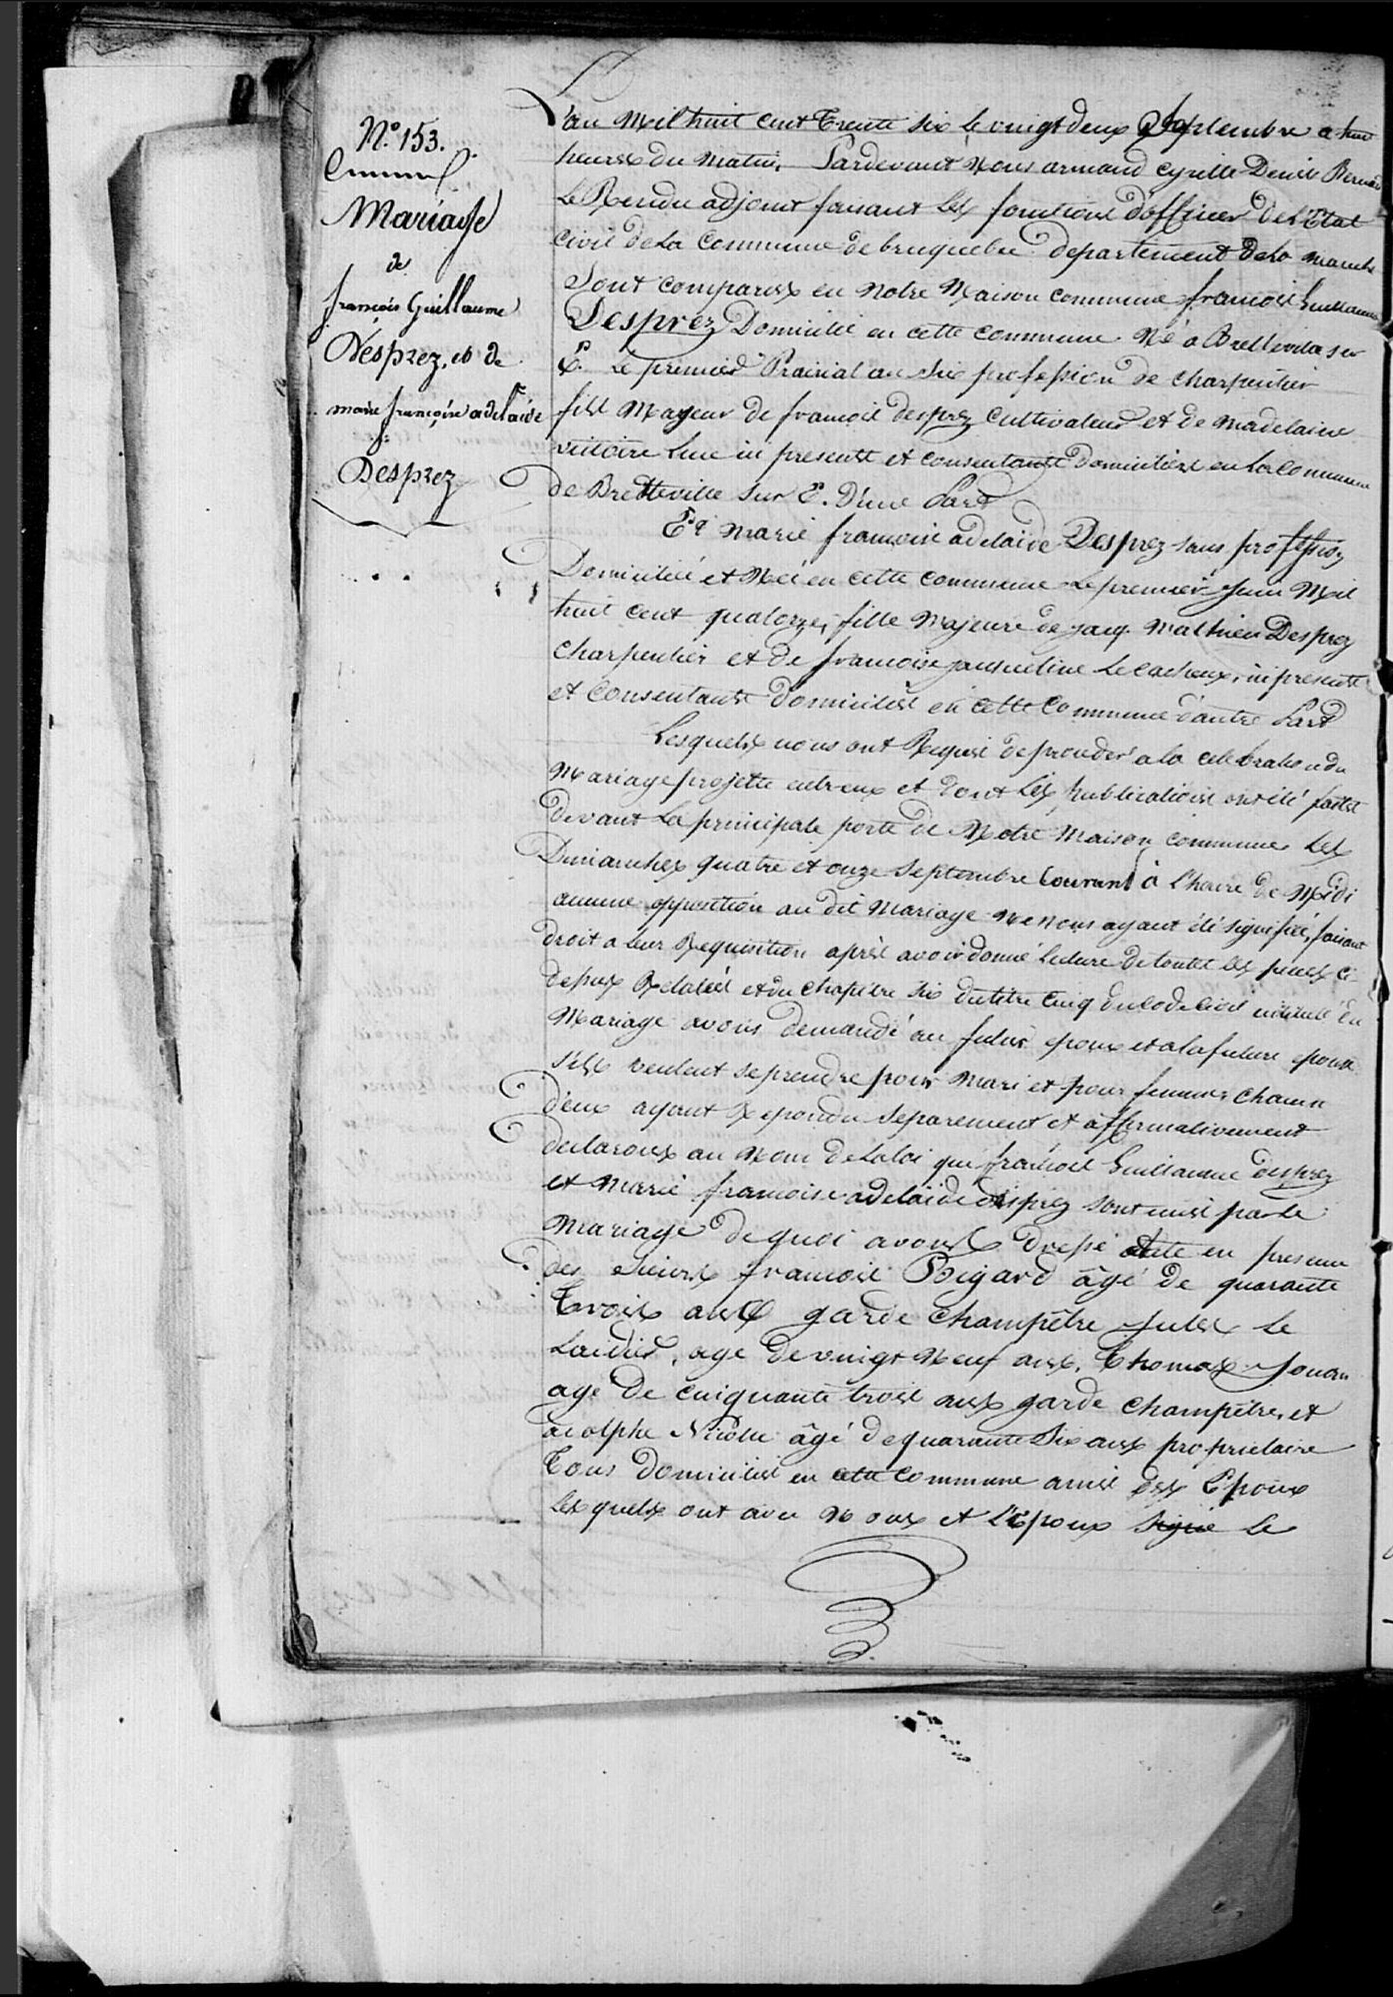 N.° 153.
Mariage
de
françois Guillaume
Desprez, et de
marie françoise adelaide
Desprez
L'an Mil huit cent Trente six le vingt deux Septembre a huit
heures du Matin, Pardevant Nous armand Cyrille Denis Bernard
Le Rendu adjoint faisant les fonctions d'officier de l'Etat
Civil de La Commune de bricquebec departement de la manche
Sont comparus en Notre Maison commune francois Guillaume
Desprez Domicilié en cette commune Né a Bretteville sur
E. Le premier Prairial an six profession de charpentier
fils Mayeur de francois desprez cultivateur et de Madelaine
victoire Luce ici presents et consentants Domiciliés en La Commune
de Bretteville sur E. D'une Part
Et marie francoise adelaide Desprez sans profession
Domiciliée et Née en cette commune Le premier Juin Mil
huit cent quatorze, fille Majeure de jacq. Mathieu Desprez
Charpentier et de francoise jacqueline Le Cacheux, ici presents
et Consentants Domiciliés en cette Commune d'autre Part
Lesquels nous ont Requis de proceder a la celebration du
Mariage projetté entr'eux et dont Les publications ont été faites
devant La principale porte de Notre Maison commune Les
Dimanches quatre et onze Septembre Courant à l'heure de Midi
aucune opposition au dit Mariage Ne Nous ayant été signifiée, faisant
droit a leur Requisition après avoir donné Lecture de toutes les pieces ci
dessus Relatées et du chapitre six du titre Cinq du Code Civil intitulé du
Mariage avons demandé au futur epoux et a la future epouse
s'ils veulent se prendre pour Mari et pour femme, chacun
d'eux ayant Repondu separement et affirmativement
declarons au Nom de La loi que francois Guillaume desprez
et Marie francoise adelaide desprez sont unis par le
Mariage de quoi avons dressé acte en presence
des sieurs francois Bigard âgé de quarante
Trois ans garde Champêtre Jules Le
Laidier, age de vingt Neuf ans, Thomas Jouan
age de cinquante trois ans garde Champêtre, et
adolphe Nicolle âgé de quarante Six ans proprietaire
Tous domiciliés en cette Commune amis des Epoux
Lesquels ont avec Nous et L'Epoux signé Le